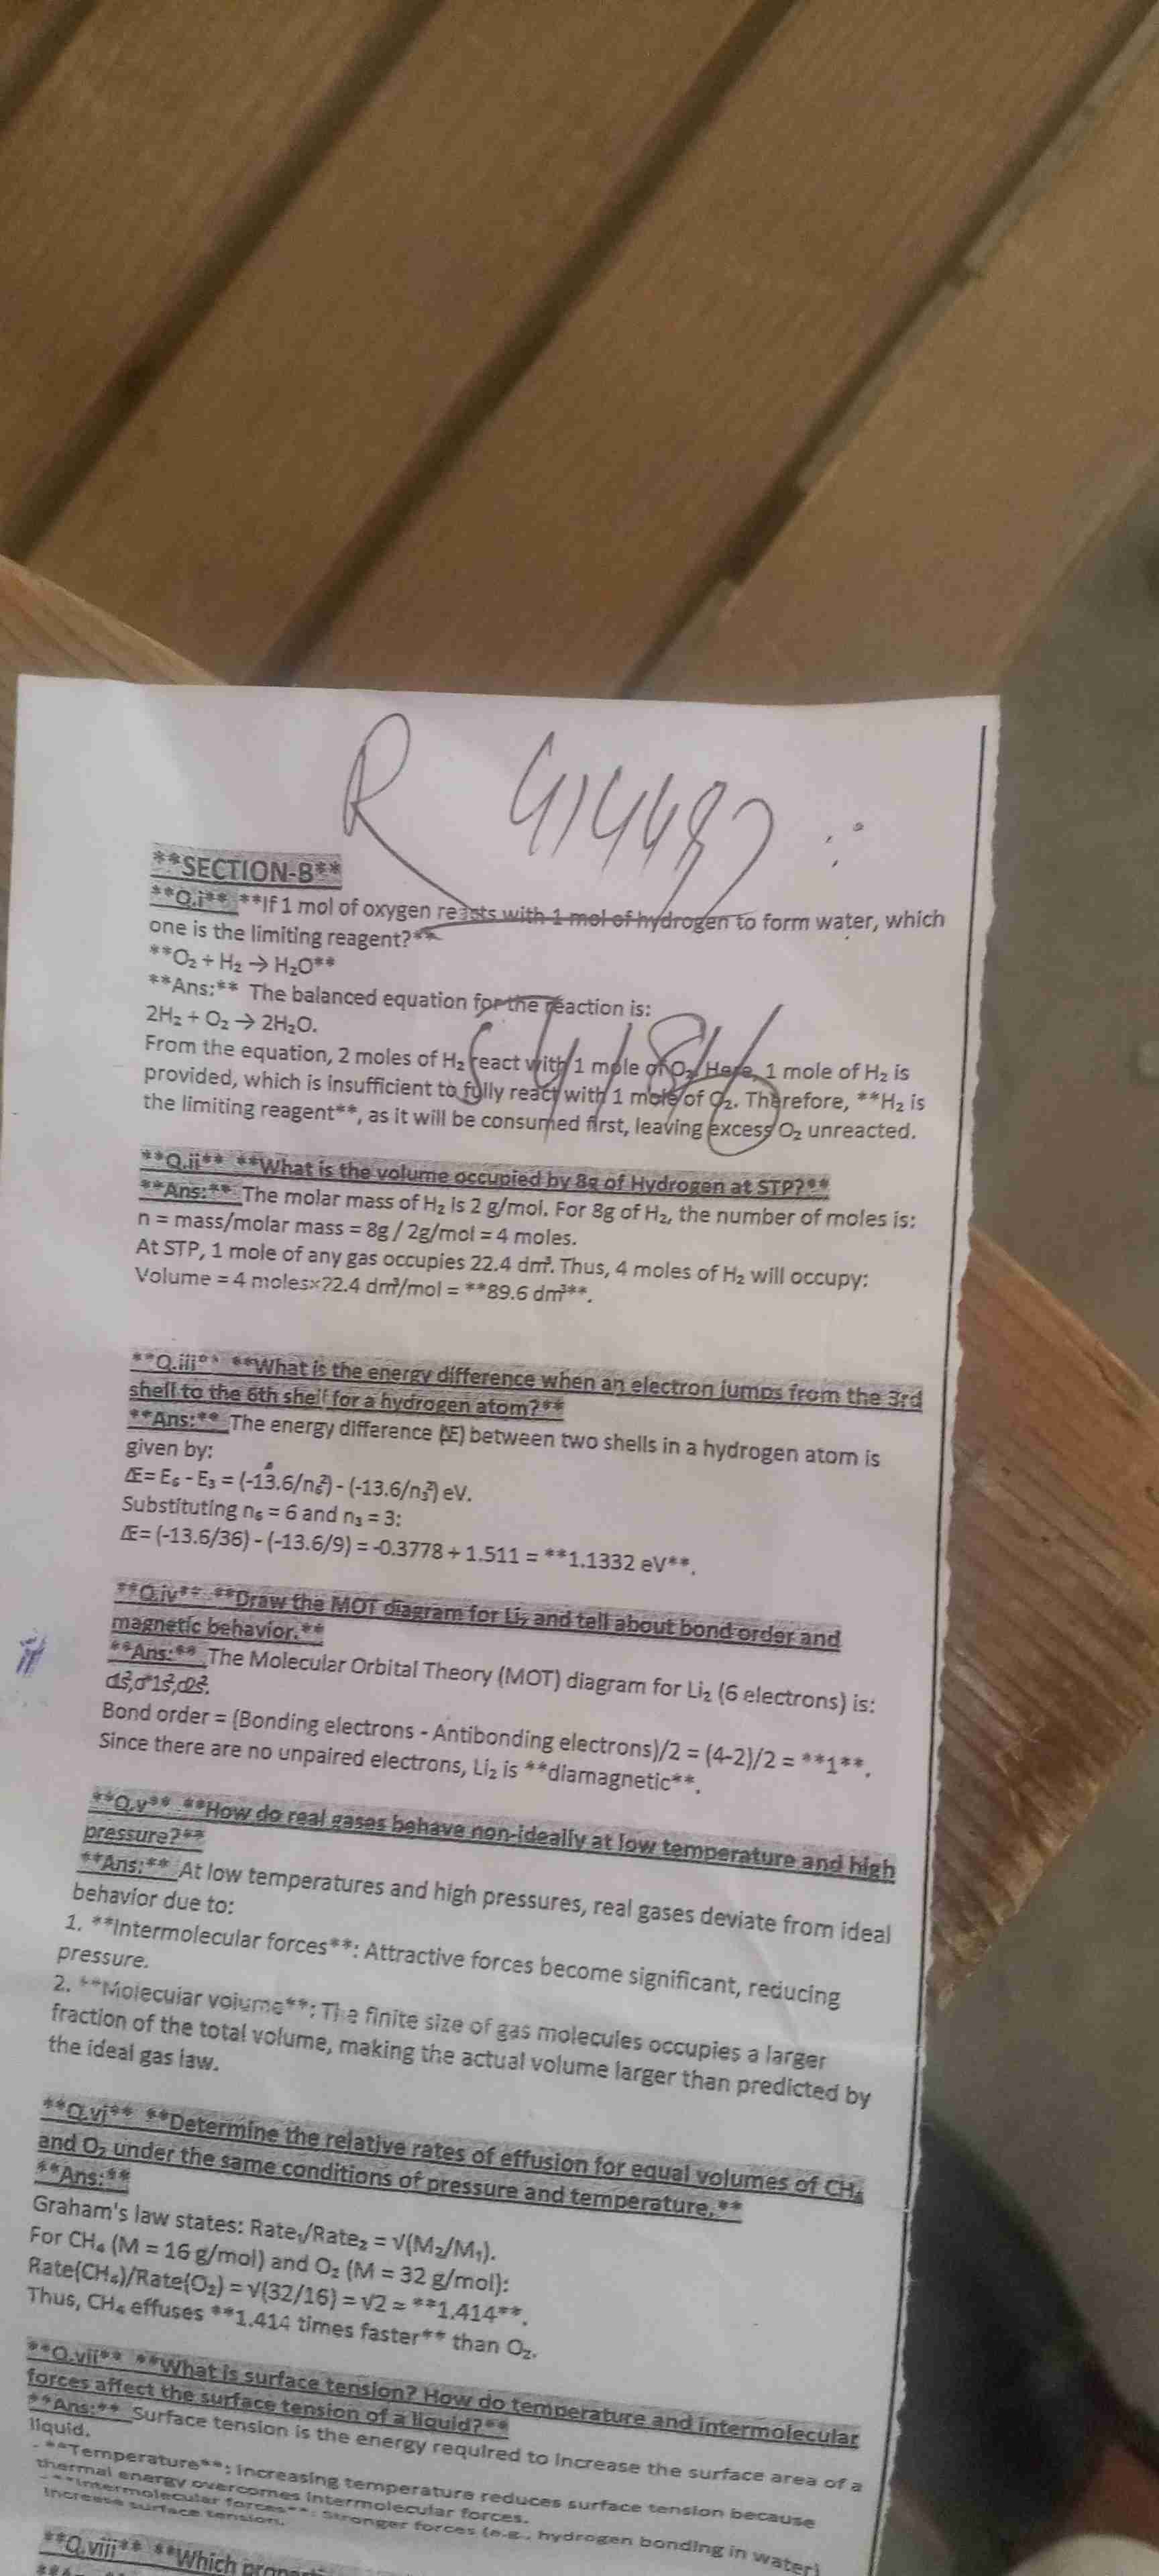 R 414487
**SECTION-B**
**Q.i** **If 1 mol of oxygen reacts with 1 mol of hydrogen to form water, which
one is the limiting reagent?**
**O₂ + H₂ → H₂O**
**Ans:** The balanced equation for the reaction is:
2H₂ + O₂ → 2H₂O.
From the equation, 2 moles of H₂ react with 1 mole of O₂. Here, 1 mole of H₂ is
provided, which is insufficient to fully react with 1 mole of O₂. Therefore, **H₂ is
the limiting reagent**, as it will be consumed first, leaving excess O₂ unreacted.
**Q.ii** **What is the volume occupied by 8g of Hydrogen at STP?**
**Ans:** The molar mass of H₂ is 2 g/mol. For 8g of H₂, the number of moles is:
n = mass/molar mass = 8g / 2g/mol = 4 moles.
At STP, 1 mole of any gas occupies 22.4 dm³. Thus, 4 moles of H₂ will occupy:
Volume = 4 moles×22.4 dm³/mol = **89.6 dm³**.
**Q.iii** **What is the energy difference when an electron jumps from the 3rd
shell to the 6th shell for a hydrogen atom?**
**Ans:** The energy difference (ΔE) between two shells in a hydrogen atom is
given by:
ΔE= E₆ - E₃ = (-13.6/n₆²) - (-13.6/n₃²) eV.
Substituting n₆ = 6 and n₃ = 3:
ΔE= (-13.6/36) - (-13.6/9) = -0.3778 + 1.511 = **1.1332 eV**.
**Q.iv** **Draw the MOT diagram for Li₂ and tell about bond order and
magnetic behavior.**
**Ans:** The Molecular Orbital Theory (MOT) diagram for Li₂ (6 electrons) is:
σ1s²,σ*1s²,σ2s².
Bond order = (Bonding electrons - Antibonding electrons)/2 = (4-2)/2 = **1**.
Since there are no unpaired electrons, Li₂ is **diamagnetic**.
**Q.v** **How do real gases behave non-ideally at low temperature and high
pressure?**
**Ans:** At low temperatures and high pressures, real gases deviate from ideal
behavior due to:
1. **Intermolecular forces**: Attractive forces become significant, reducing
pressure.
2. **Molecular volume**: The finite size of gas molecules occupies a larger
fraction of the total volume, making the actual volume larger than predicted by
the ideal gas law.
**Q.vi** **Determine the relative rates of effusion for equal volumes of CH₄
and O₂ under the same conditions of pressure and temperature.**
**Ans:**
Graham's law states: Rate₁/Rate₂ = √(M₂/M₁).
For CH₄ (M = 16 g/mol) and O₂ (M = 32 g/mol):
Rate(CH₄)/Rate(O₂) = √(32/16) = √2 = **1.414**.
Thus, CH₄ effuses **1.414 times faster** than O₂.
**Q.vii** **What is surface tension? How do temperature and intermolecular
forces affect the surface tension of a liquid?**
**Ans:** Surface tension is the energy required to increase the surface area of a
liquid.
- **Temperature**: Increasing temperature reduces surface tension because
thermal energy overcomes intermolecular forces.
- **Intermolecular forces**: Stronger forces (e.g., hydrogen bonding in water)
increase surface tension.
**Q.viii** **Which